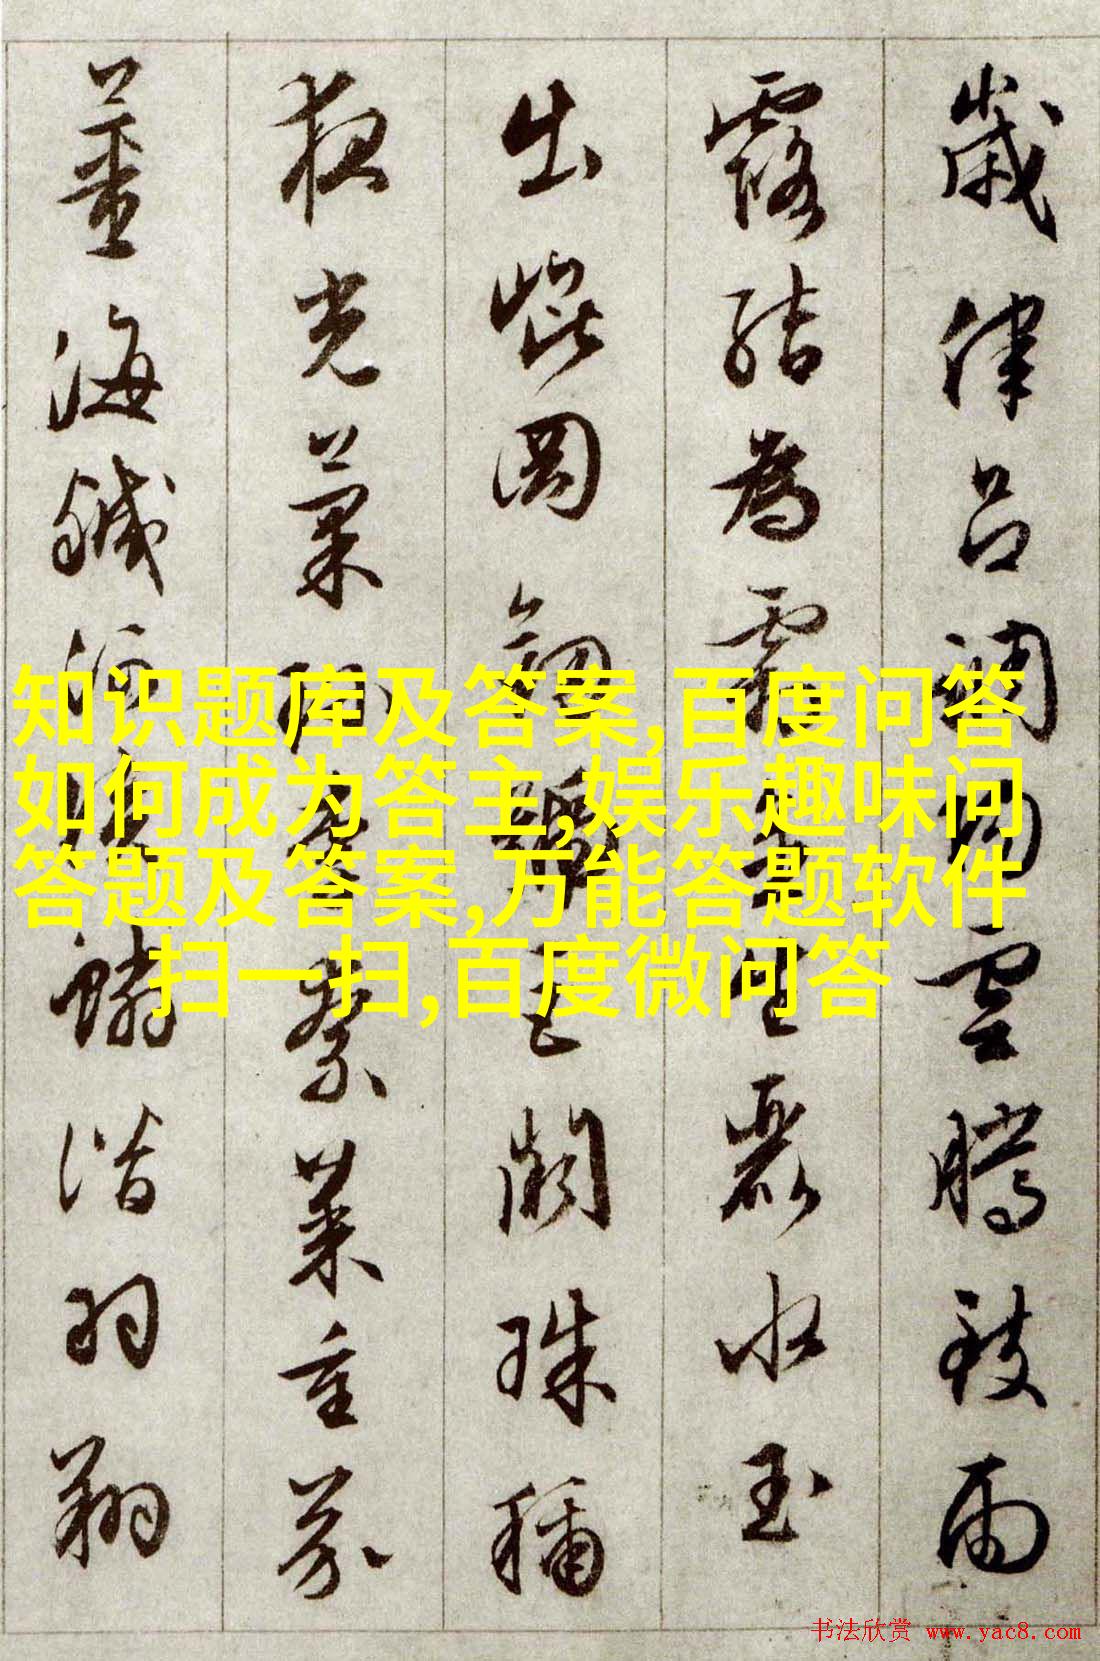 歲律呂調陽雲騰致雨
露結為霜金生麗水玉
出崐岡劍號巨闕珠稱
夜光菓珍李柰菜重芥
薑海鹹河淡鱗潛羽翔
知识题库及答案,百度问答
如何成为答主,娱乐趣味问
答题及答案,万能答题软件
扫一扫,百度微问答
书法欣赏 www.yac8.com